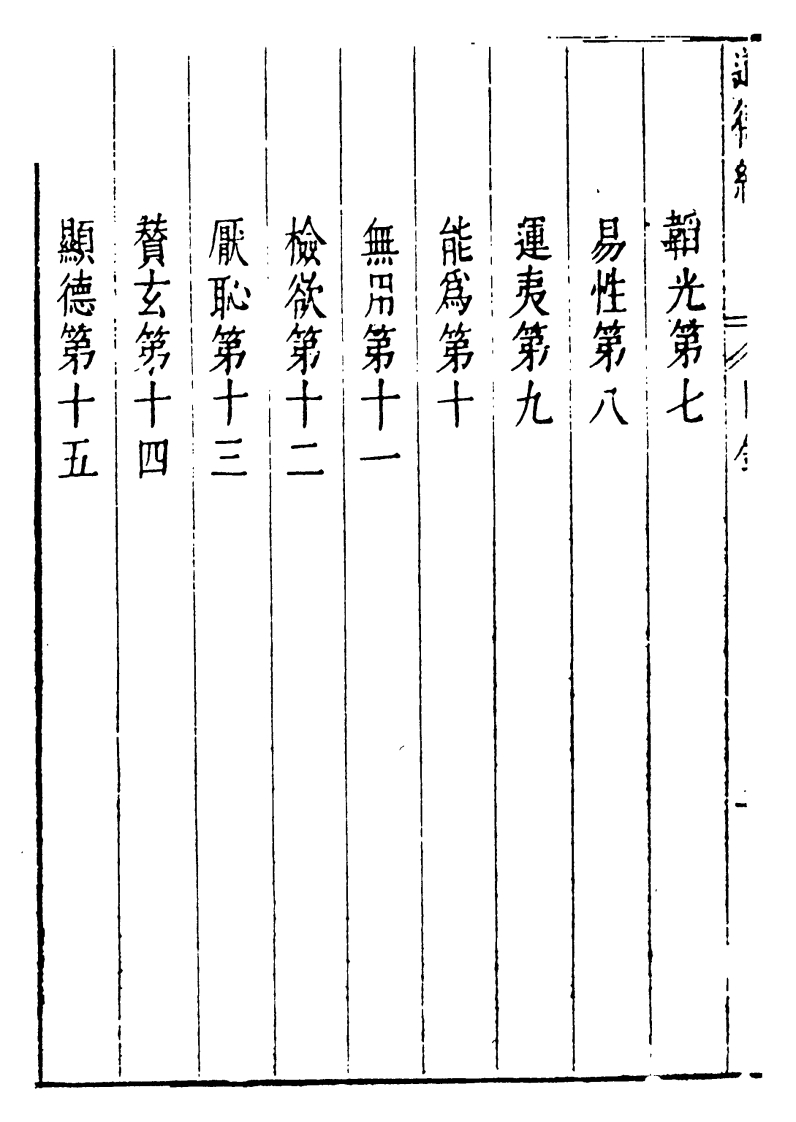 韜光第七
易性第八
運夷第九
能爲第十
無用第十一
檢欲第十二
厭恥第十三
贊玄第十四
顯德第十五